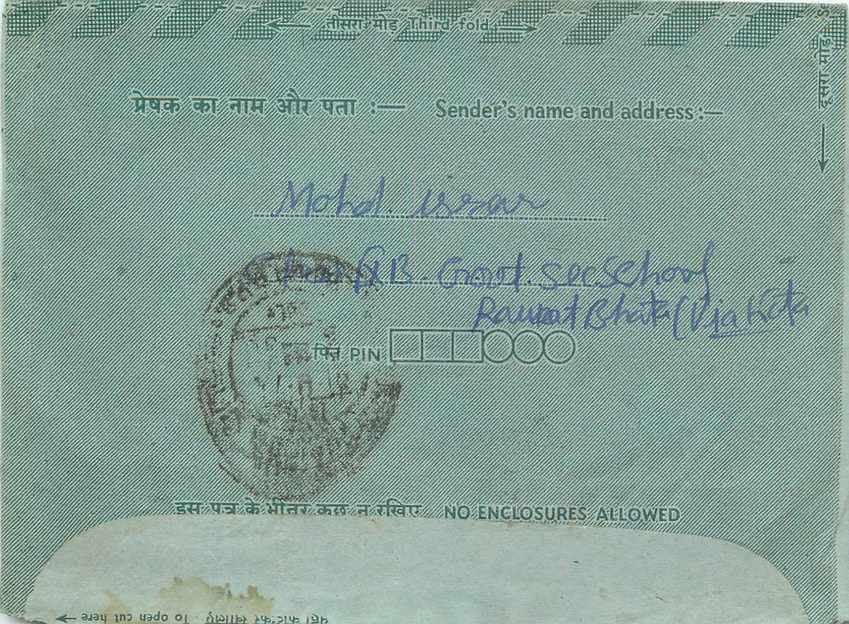 तीसरा मोड़ Third fold
दूसरा मोड़
प्रेषक का नाम और पता :— Sender's name and address :—
Mohd.
B. Govt. Sec School
Rawat Bhata (Via Kota
पिन PIN
इस पत्र के भीतर कुछ न रखिए NO ENCLOSURES ALLOWED
यहाँ काटकर खोलिए To open cut here